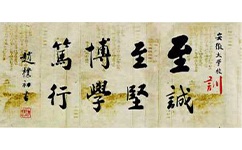 安徽大學校訓
至誠
至堅
博學
篤行
趙樸初書